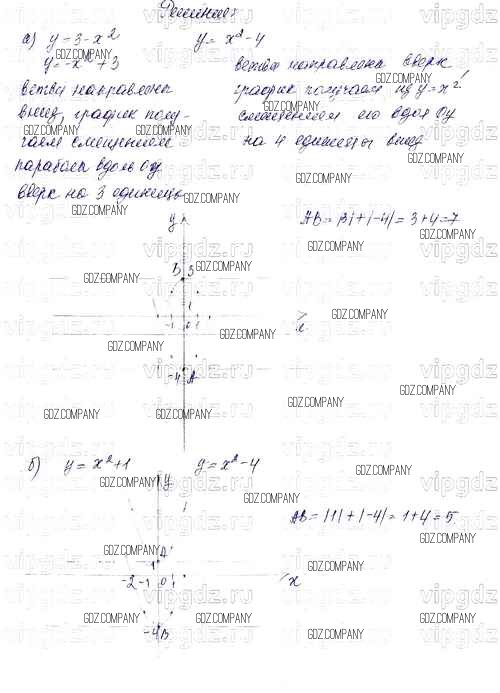 Решение:
а) y = 3 - x² y = x² - 4
y = -x² + 3 ветви направлена вверх
ветви направлена график получаем из y = x²
вниз, график полу- смещением его вдоль Oy
чаем смещением на 4 единицы вниз
параболы вдоль Oy
вверх на 3 единицы
AB = |3| + |-4| = 3 + 4 = 7
y
B 3
1
-1 0 1 x
-4 A
б) y = x² + 1 y = x² - 4
y
AB = |1| + |-4| = 1 + 4 = 5
A
1
-2 -1 0 1 x
-4 B
GDZ.COMPANY
vipgdz.ru